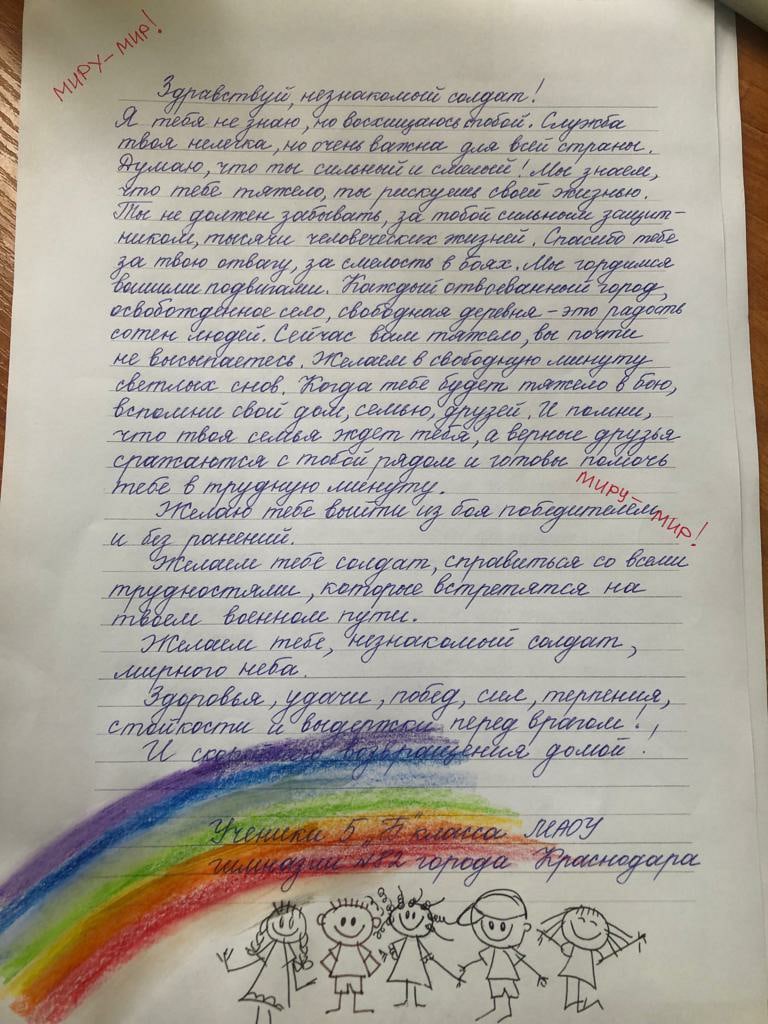 МИРУ-МИР!
Здравствуй, незнакомый солдат!
Я тебя не знаю, но восхищаюсь тобой. Служба
твоя нелегка, но очень важна для всей страны.
Думаю, что ты сильный и смелый! Мы знаем,
что тебе тяжело, ты рискуешь своей жизнью.
Ты не должен забывать, за тобой сильным защит-
ником, тысячи человеческих жизней. Спасибо тебе
за твою отвагу, за смелость в боях. Мы гордимся
вашими подвигами. Каждый отвоеванный город,
освобожденное село, свободная деревня - это радость
сотен людей. Сейчас вам тяжело, вы почти
не высыпаетесь. Желаем в свободную минуту
светлых снов. Когда тебе будет тяжело в бою,
вспомни свой дом, семью, друзей. И помни,
что твоя семья ждет тебя, а верные друзья
сражаются с тобой рядом и готовы помочь
тебе в трудную минуту.
МИРУ-МИР!
Желаю тебе выйти из боя победителем
и без ранений.
Желаем тебе солдат, справиться со всеми
трудностями, которые встретятся на
твоем военном пути.
Желаем тебе, незнакомый солдат,
мирного неба.
Здоровья, удачи, побед, сил, терпения,
стойкости и выдержки перед врагом!
И скорейшего возвращения домой!
Ученики 5 "Б" класса МАОУ
гимназии №82 города Краснодара